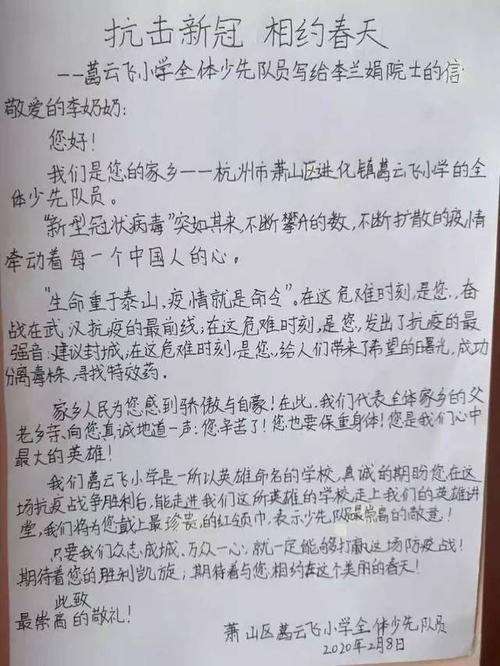 抗击新冠 相约春天
——葛云飞小学全体少先队员写给李兰娟院士的信
敬爱的李奶奶:
您好!
我们是您的家乡——杭州市萧山区进化镇葛云飞小学的全
体少先队员。
"新型冠状病毒"突如其来,不断攀升的数,不断扩散的疫情
牵动着每一个中国人的心。
"生命重于泰山,疫情就是命令"。在这危难时刻,是您,奋
战在武汉抗疫的最前线;在这危难时刻,是您,发出了抗疫的最
强音:建议封城;在这危难时刻,是您,给人们带来了希望的曙光,成功
分离毒株,寻找特效药。
家乡人民为您感到骄傲与自豪!在此,我们代表全体家乡的父
老乡亲,向您真诚地道一声:您辛苦了!您也要保重身体!您是我们心中
最大的英雄!
我们葛云飞小学是一所以英雄命名的学校,真诚的期盼您在这
场抗疫战争胜利后,能走进我们这所英雄的学校,走上我们的英雄讲
堂,我们将为您戴上最珍贵的红领巾,表示少先队最崇高的敬意!
只要我们众志成城,万众一心,就一定能够打赢这场防疫战!
期待着您的胜利凯旋;期待着与您相约在这个美丽的春天!
此致
最崇高的敬礼!
萧山区葛云飞小学全体少先队员
2020年2月8日